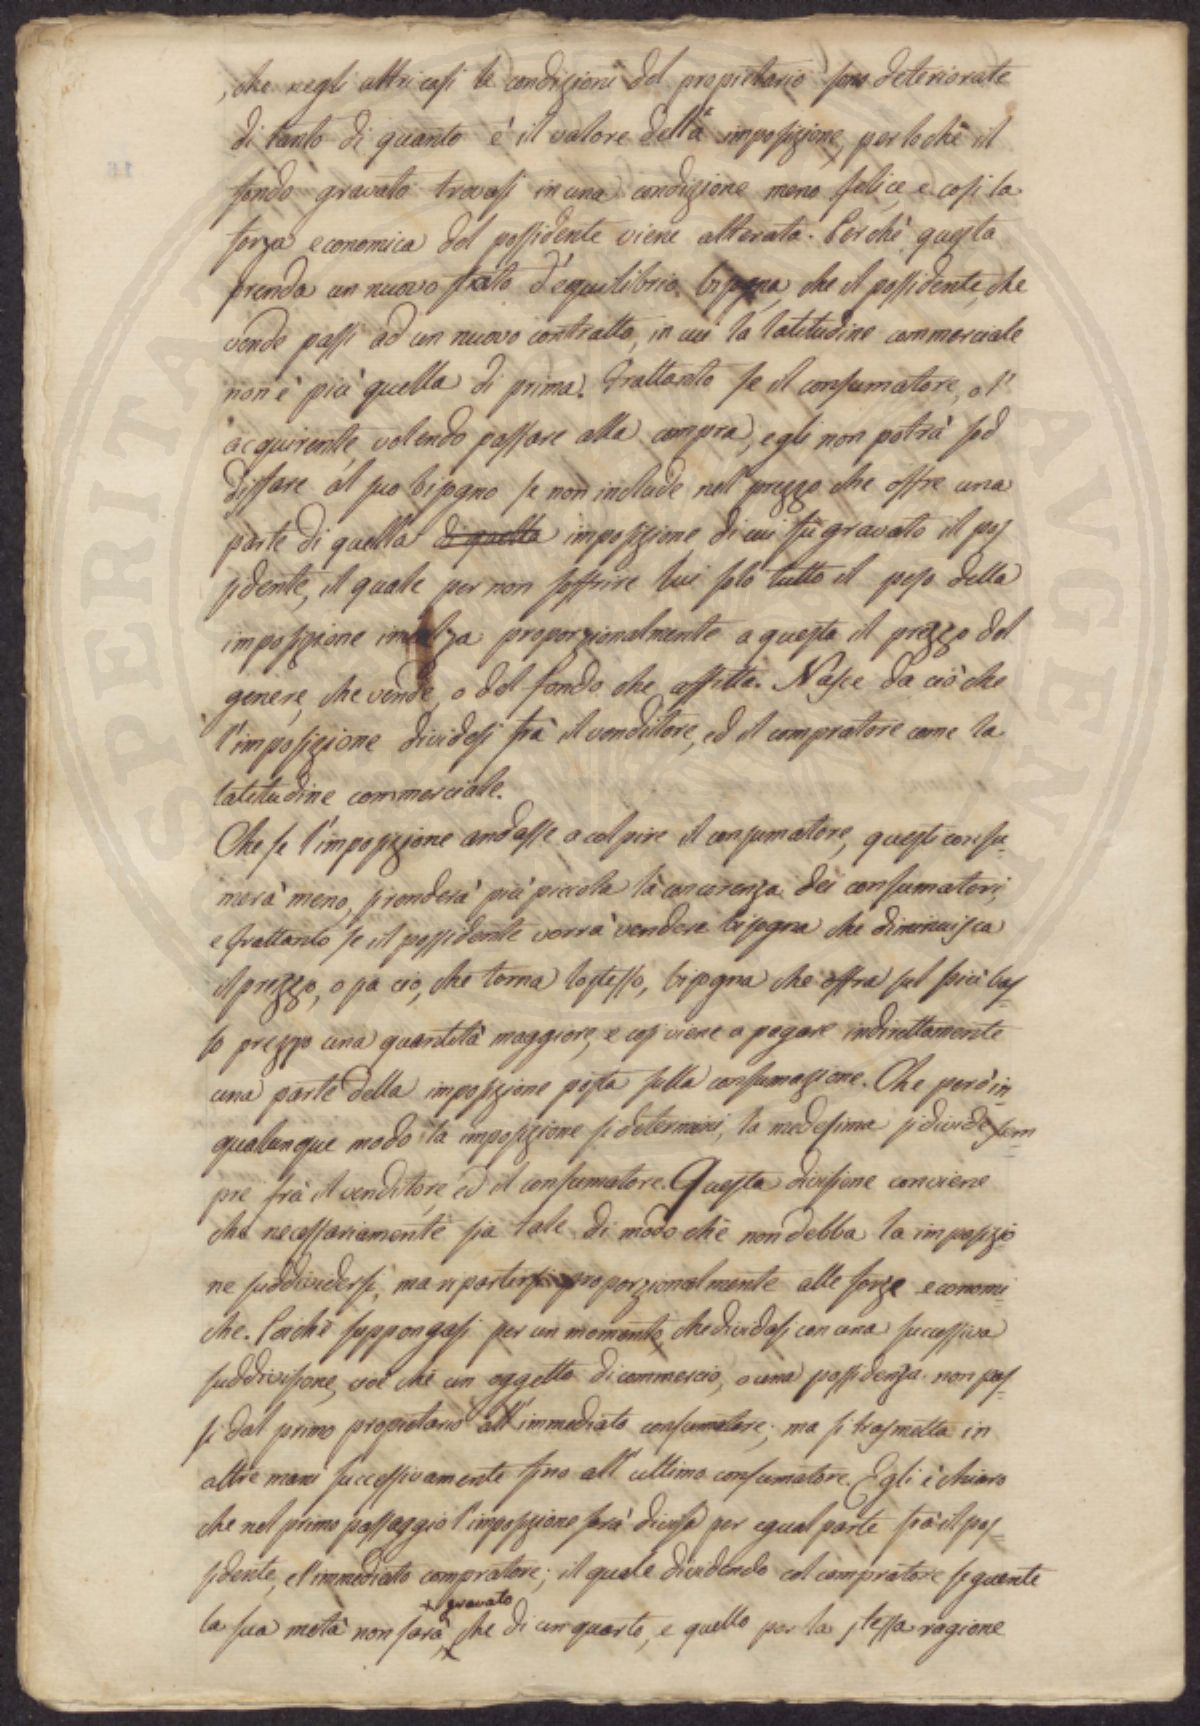 , che negli altri casi le condizioni del proprietario sono deteriorate
di tanto di quanto è il valore della imposizione, per lo chè il
fondo gravato trovasi in una condizione meno felice, e così la
forza economica del possidente viene alterata. Perchè questa
prenda un nuovo stato d'equilibrio bisogna, che il possidente, che
vende passi ad un nuovo contratto, in cui la latitudine commerciale
non è più quella di prima. Frattanto se il consumatore, o l'
acquirente, volendo passare alla compra, egli non potrà sod
disfare al suo bisogno se non include nel prezzo che offre una
parte di quella di quella imposizione di cui fù gravato il pos
sidente, il quale per non soffrire lui solo tutto il peso della
imposizione inalza proporzionalmente a questa il prezzo del
genere, che vende, o del fondo che affitta. Nasce da ciò che
l'imposizione dividesi frà il venditore, ed il compratore come la
latitudine commerciale.
Che se l'imposizione andasse a colpire il consumatore, questi consu-
merà meno, si renderà più piccola la concorenza dei consumatori,
e frattanto se il possidente vorrà vendere bisogna che diminuisca
il prezzo, o sia ciò, che torna lo stesso, bisogna che offra sul più bas-
so prezzo una quantità maggiore, e così viene a pagare indirettamente
una parte della imposizione posta sulla consumazione. Che però in
qualunque modo la imposizione si determini, la medesima si divide sem
pre frà il venditore, ed il consumatore. Questa divisione conviene
che necessariamente sia tale di modo chè non debba la imposizio
ne suddividersi, ma ripartirsi proporzionalmente alle forze economi-
che. Poichè suppongasi per un momento, che dividasi con una successiva
suddivisione, cioè che un oggetto di commercio, o una possidenza non pas-
si dal primo proprietario all'immediato consumatore; ma si trasmetta in
altre mani successivamente fino all'ultimo consumatore. Egli è chiaro
che nel primo passaggio l'imposizione sarà divisa per egual parte frà il pos-
sidente, e l'immediato compratore; il quale dividendo col compratore seguente
gravato
la sua metà non sarà, che di un quarto, e quello per la stessa ragione
SPERITAT
AVGENT